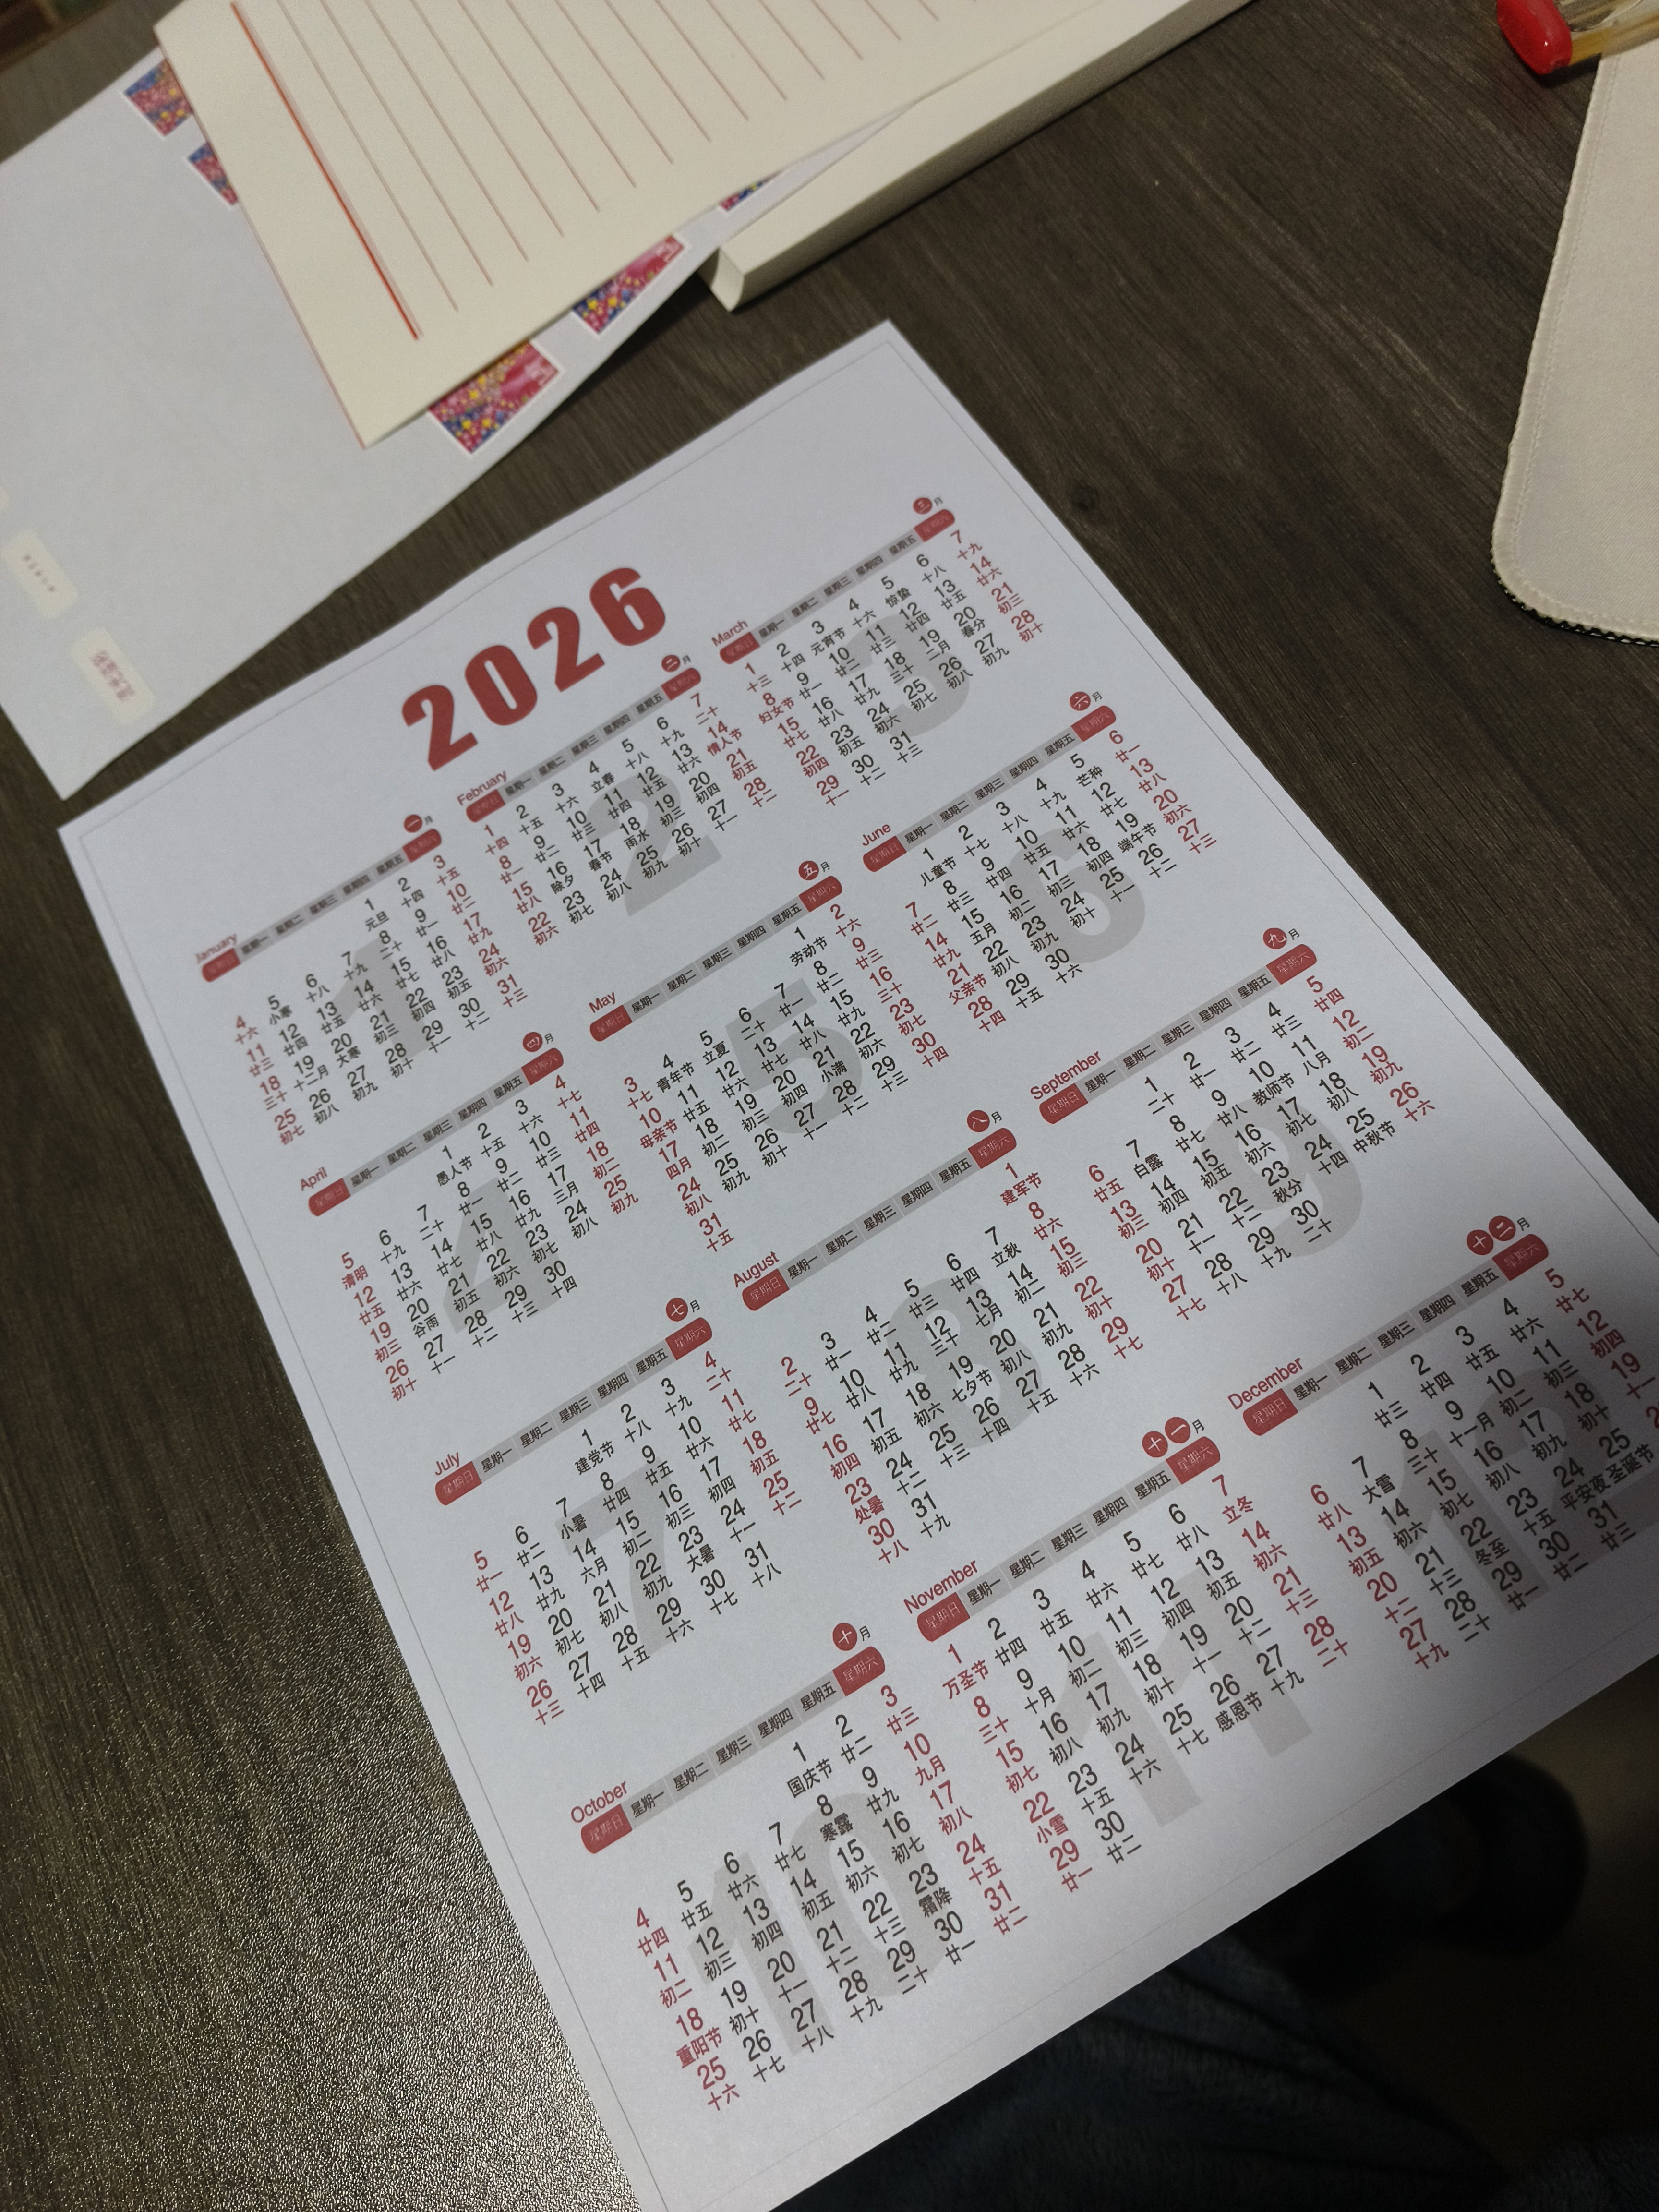 2026
January 一月
星期日 星期一 星期二 星期三 星期四 星期五 星期六
1 2 3
元旦 十四 十五
4 5 6 7 8 9 10
十六 小寒 十八 十九 二十 廿一 廿二
11 12 13 14 15 16 17
廿三 廿四 廿五 廿六 廿七 廿八 廿九
18 19 20 21 22 23 24
三十 十二月 大寒 初三 初四 初五 初六
25 26 27 28 29 30 31
初七 初八 初九 初十 十一 十二 十三
1
February 二月
星期日 星期一 星期二 星期三 星期四 星期五 星期六
1 2 3 4 5 6 7
十四 十五 十六 立春 十八 十九 二十
8 9 10 11 12 13 14
廿一 廿二 廿三 廿四 廿五 廿六 情人节
15 16 17 18 19 20 21
廿八 除夕 春节 雨水 初三 初四 初五
22 23 24 25 26 27 28
初六 初七 初八 初九 初十 十一 十二
2
March 三月
星期日 星期一 星期二 星期三 星期四 星期五 星期六
1 2 3 4 5 6 7
十三 十四 元宵节 十六 惊蛰 十八 十九
8 9 10 11 12 13 14
妇女节 廿一 廿二 廿三 廿四 廿五 廿六
15 16 17 18 19 20 21
廿七 廿八 廿九 三十 二月 春分 初三
22 23 24 25 26 27 28
初四 初五 初六 初七 初八 初九 初十
29 30 31
十一 十二 十三
3
April 四月
星期日 星期一 星期二 星期三 星期四 星期五 星期六
1 2 3 4
愚人节 十五 十六 十七
5 6 7 8 9 10 11
清明 十九 二十 廿一 廿二 廿三 廿四
12 13 14 15 16 17 18
廿五 廿六 廿七 廿八 廿九 三月 初二
19 20 21 22 23 24 25
初三 谷雨 初五 初六 初七 初八 初九
26 27 28 29 30
初十 十一 十二 十三 十四
4
May 五月
星期日 星期一 星期二 星期三 星期四 星期五 星期六
1 2
劳动节 十六
3 4 5 6 7 8 9
十七 青年节 立夏 二十 廿一 廿二 廿三
10 11 12 13 14 15 16
母亲节 廿五 廿六 廿七 廿八 廿九 三十
17 18 19 20 21 22 23
四月 初二 初三 初四 小满 初六 初七
24 25 26 27 28 29 30
初八 初九 初十 十一 十二 十三 十四
31
十五
5
June 六月
星期日 星期一 星期二 星期三 星期四 星期五 星期六
1 2 3 4 5 6
儿童节 十七 十八 十九 芒种 廿一
7 8 9 10 11 12 13
廿二 廿三 廿四 廿五 廿六 廿七 廿八
14 15 16 17 18 19 20
廿九 五月 初二 初三 初四 端午节 初六
21 22 23 24 25 26 27
父亲节 初八 初九 初十 十一 十二 十三
28 29 30
十四 十五 十六
6
July 七月
星期日 星期一 星期二 星期三 星期四 星期五 星期六
1 2 3 4
建党节 十八 十九 二十
5 6 7 8 9 10 11
廿一 廿二 小暑 廿四 廿五 廿六 廿七
12 13 14 15 16 17 18
廿八 廿九 六月 初二 初三 初四 初五
19 20 21 22 23 24 25
初六 初七 初八 初九 大暑 十一 十二
26 27 28 29 30 31
十三 十四 十五 十六 十七 十八
7
August 八月
星期日 星期一 星期二 星期三 星期四 星期五 星期六
1
建军节
2 3 4 5 6 7 8
二十 廿一 廿二 廿三 廿四 立秋 廿六
9 10 11 12 13 14 15
廿七 廿八 廿九 三十 七月 初二 初三
16 17 18 19 20 21 22
初四 初五 初六 七夕节 初八 初九 初十
23 24 25 26 27 28 29
处暑 十二 十三 十四 十五 十六 十七
30 31
十八 十九
8
September 九月
星期日 星期一 星期二 星期三 星期四 星期五 星期六
1 2 3 4 5
二十 廿一 廿二 廿三 廿四
6 7 8 9 10 11 12
廿五 白露 廿七 廿八 教师节 八月 初二
13 14 15 16 17 18 19
初三 初四 初五 初六 初七 初八 初九
20 21 22 23 24 25 26
初十 十一 十二 秋分 十四 中秋节 十六
27 28 29 30
十七 十八 十九 二十
9
October 十月
星期日 星期一 星期二 星期三 星期四 星期五 星期六
1 2 3
国庆节 廿二 廿三
4 5 6 7 8 9 10
廿四 廿五 廿六 廿七 寒露 廿九 九月
11 12 13 14 15 16 17
初二 初三 初四 初五 初六 初七 初八
18 19 20 21 22 23 24
重阳节 初十 十一 十二 十三 霜降 十五
25 26 27 28 29 30 31
十六 十七 十八 十九 二十 廿一 廿二
10
November 十一月
星期日 星期一 星期二 星期三 星期四 星期五 星期六
1 2 3 4 5 6 7
万圣节 廿四 廿五 廿六 廿七 廿八 立冬
8 9 10 11 12 13 14
三十 十月 初二 初三 初四 初五 初六
15 16 17 18 19 20 21
初七 初八 初九 初十 十一 十二 十三
22 23 24 25 26 27 28
小雪 十五 十六 十七 感恩节 十九 二十
29 30
廿一 廿二
11
December 十二月
星期日 星期一 星期二 星期三 星期四 星期五 星期六
1 2 3 4 5
廿三 廿四 廿五 廿六 廿七
6 7 8 9 10 11 12
廿八 大雪 三十 十一月 初二 初三 初四
13 14 15 16 17 18 19
初五 初六 初七 初八 初九 初十 十一
20 21 22 23 24 25
十二 十三 冬至 十五 平安夜 圣诞节
27 28 29 30 31
十九 二十 廿一 廿二 廿三
12